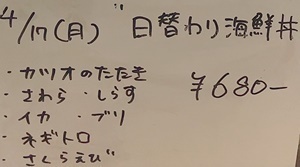 4/17(月) 日替わり海鮮丼
・カツオのたたき
・さわら ・しらす
・イカ ・ブリ
・ネギトロ
・さくらえび
¥680-